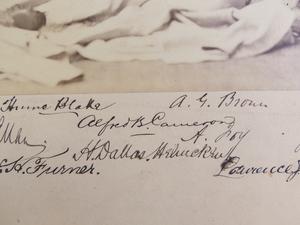 Hume Blake
A. G. Brown
Alfred B. Cameron
A. Foy
H. Dallas
H. Turner.
Lawrence